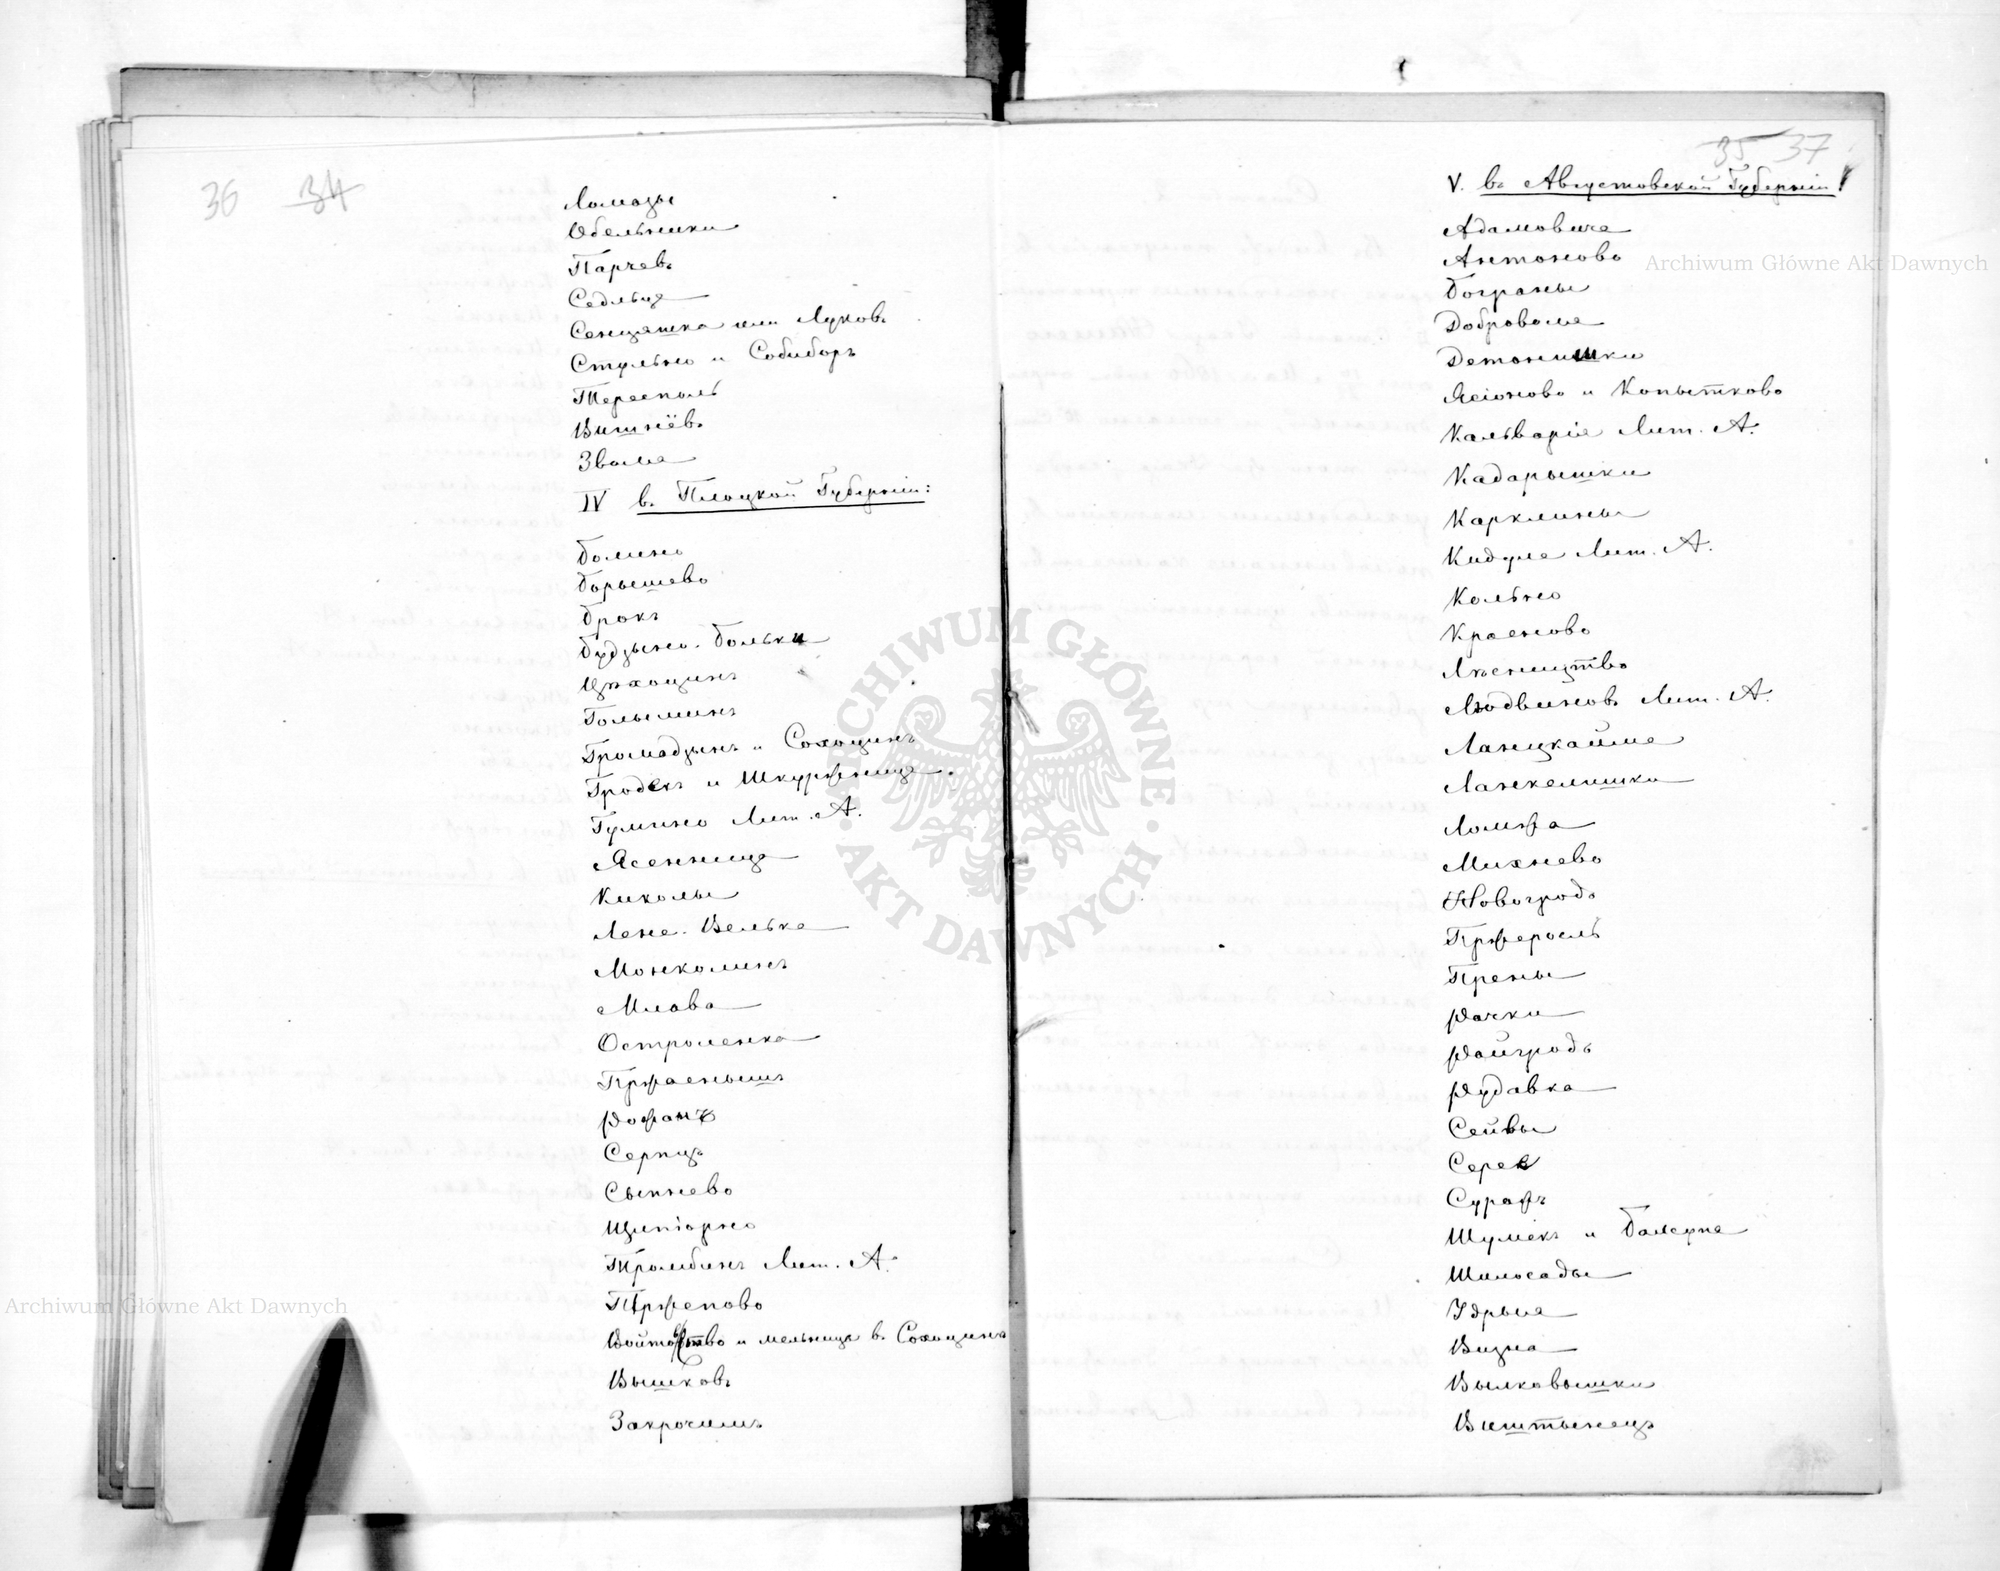 36 34
Ломазы
Обельники
Парчевъ
Седльце
Сенцяшка или Луковъ
Стульно и Собиборъ
Тересполь
Вишнёвъ
Зволя
IV въ Плоцкой Губерніи:
Болино
Борышево
Брокъ
Будзыно-Больки
Цѣхоцинъ
Голыминъ
Громадзынъ и Сохоцинъ
Гродекъ и Шкурженица
Гумино Лит. А.
Ясенница
Киколы
Лене-Велька
Монколинъ
Млава
Остроленка
Пржаснышъ
Рожанъ
Серпцъ
Сыпнево
Щипіорно
Тромбинъ Лит. А.
Пржепово
Войтовство и мельница въ Сохоцинѣ
Вышковъ
Закрочимъ
35 37
V. въ Августовской Губерніи
Адамовиче
Антоново
Бограны
Доброволя
Детонишки
Ясіоново и Копытково
Кальварія Лит. А.
Кадарышки
Карклины
Кидуле Лит. А.
Кольно
Красново
Лѣсництво
Людвиновъ Лит. А.
Ланцкайма
Ланкелишки
Ломжа
Михнево
Новогродъ
Пржеросль
Прены
Рачки
Райгродъ
Рудавка
Сейвы
Серее
Суражъ
Шумекъ и Балерпа
Шилосады
Удрыя
Визна
Вылковышки
Виштынецъ
Archiwum Główne Akt Dawnych
Archiwum Główne Akt Dawnych
ARCHIWUM GŁÓWNE AKT DAWNYCH